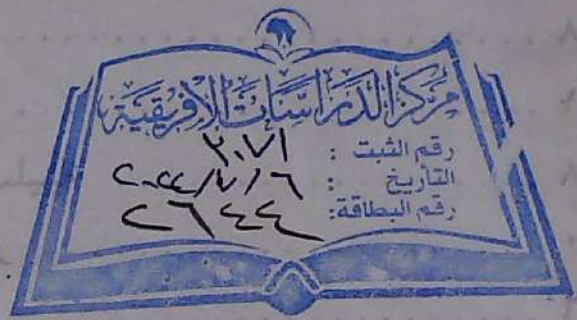 مركز الدراسات الأفريقية
رقم الثبت : ٢٠٧١
التاريخ : ٢٠٢٤/٧/٦
رقم البطاقة: ٢٦٤٤